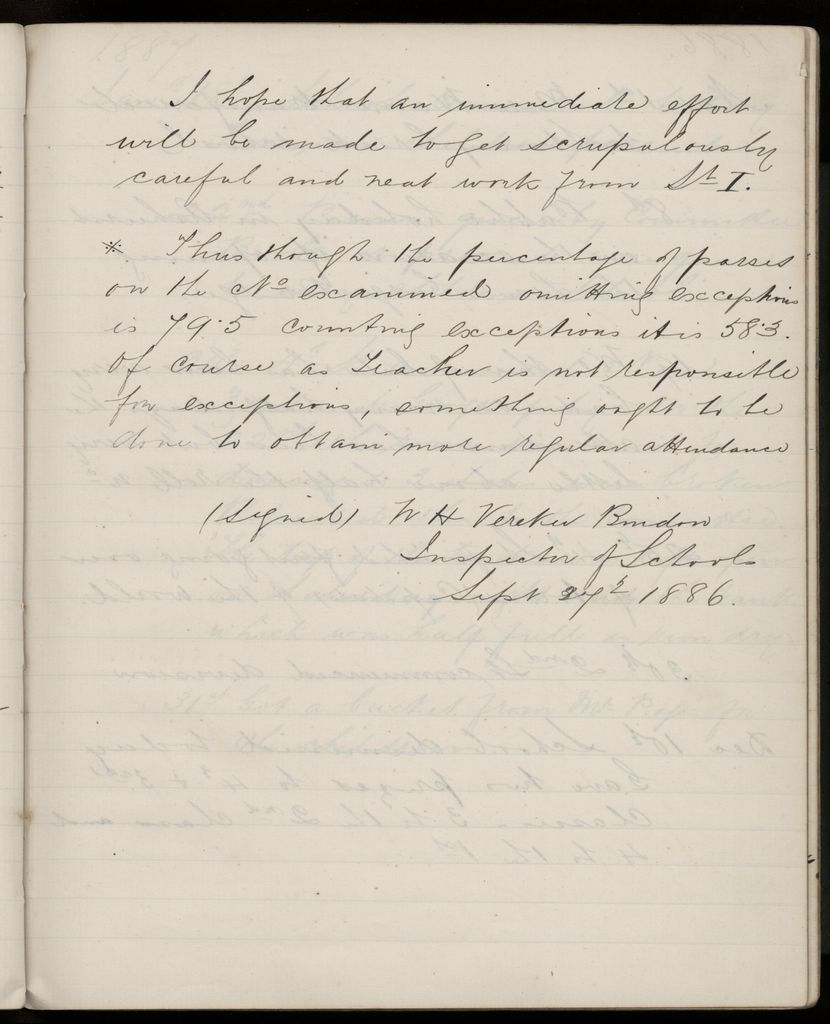 I hope that an immediate effort
will be made to get scrupulously
careful and neat work from St I.
* Thus though the percentage of passes
on the No examined omitting exceptions
is 79.5 counting exceptions it is 58.3.
Of course as Teacher is not responsible
for exceptions, something ought to be
done to obtain more regular attendance
(Signed) W H Vereker Bindon
Inspector of Schools
Sept 1886.